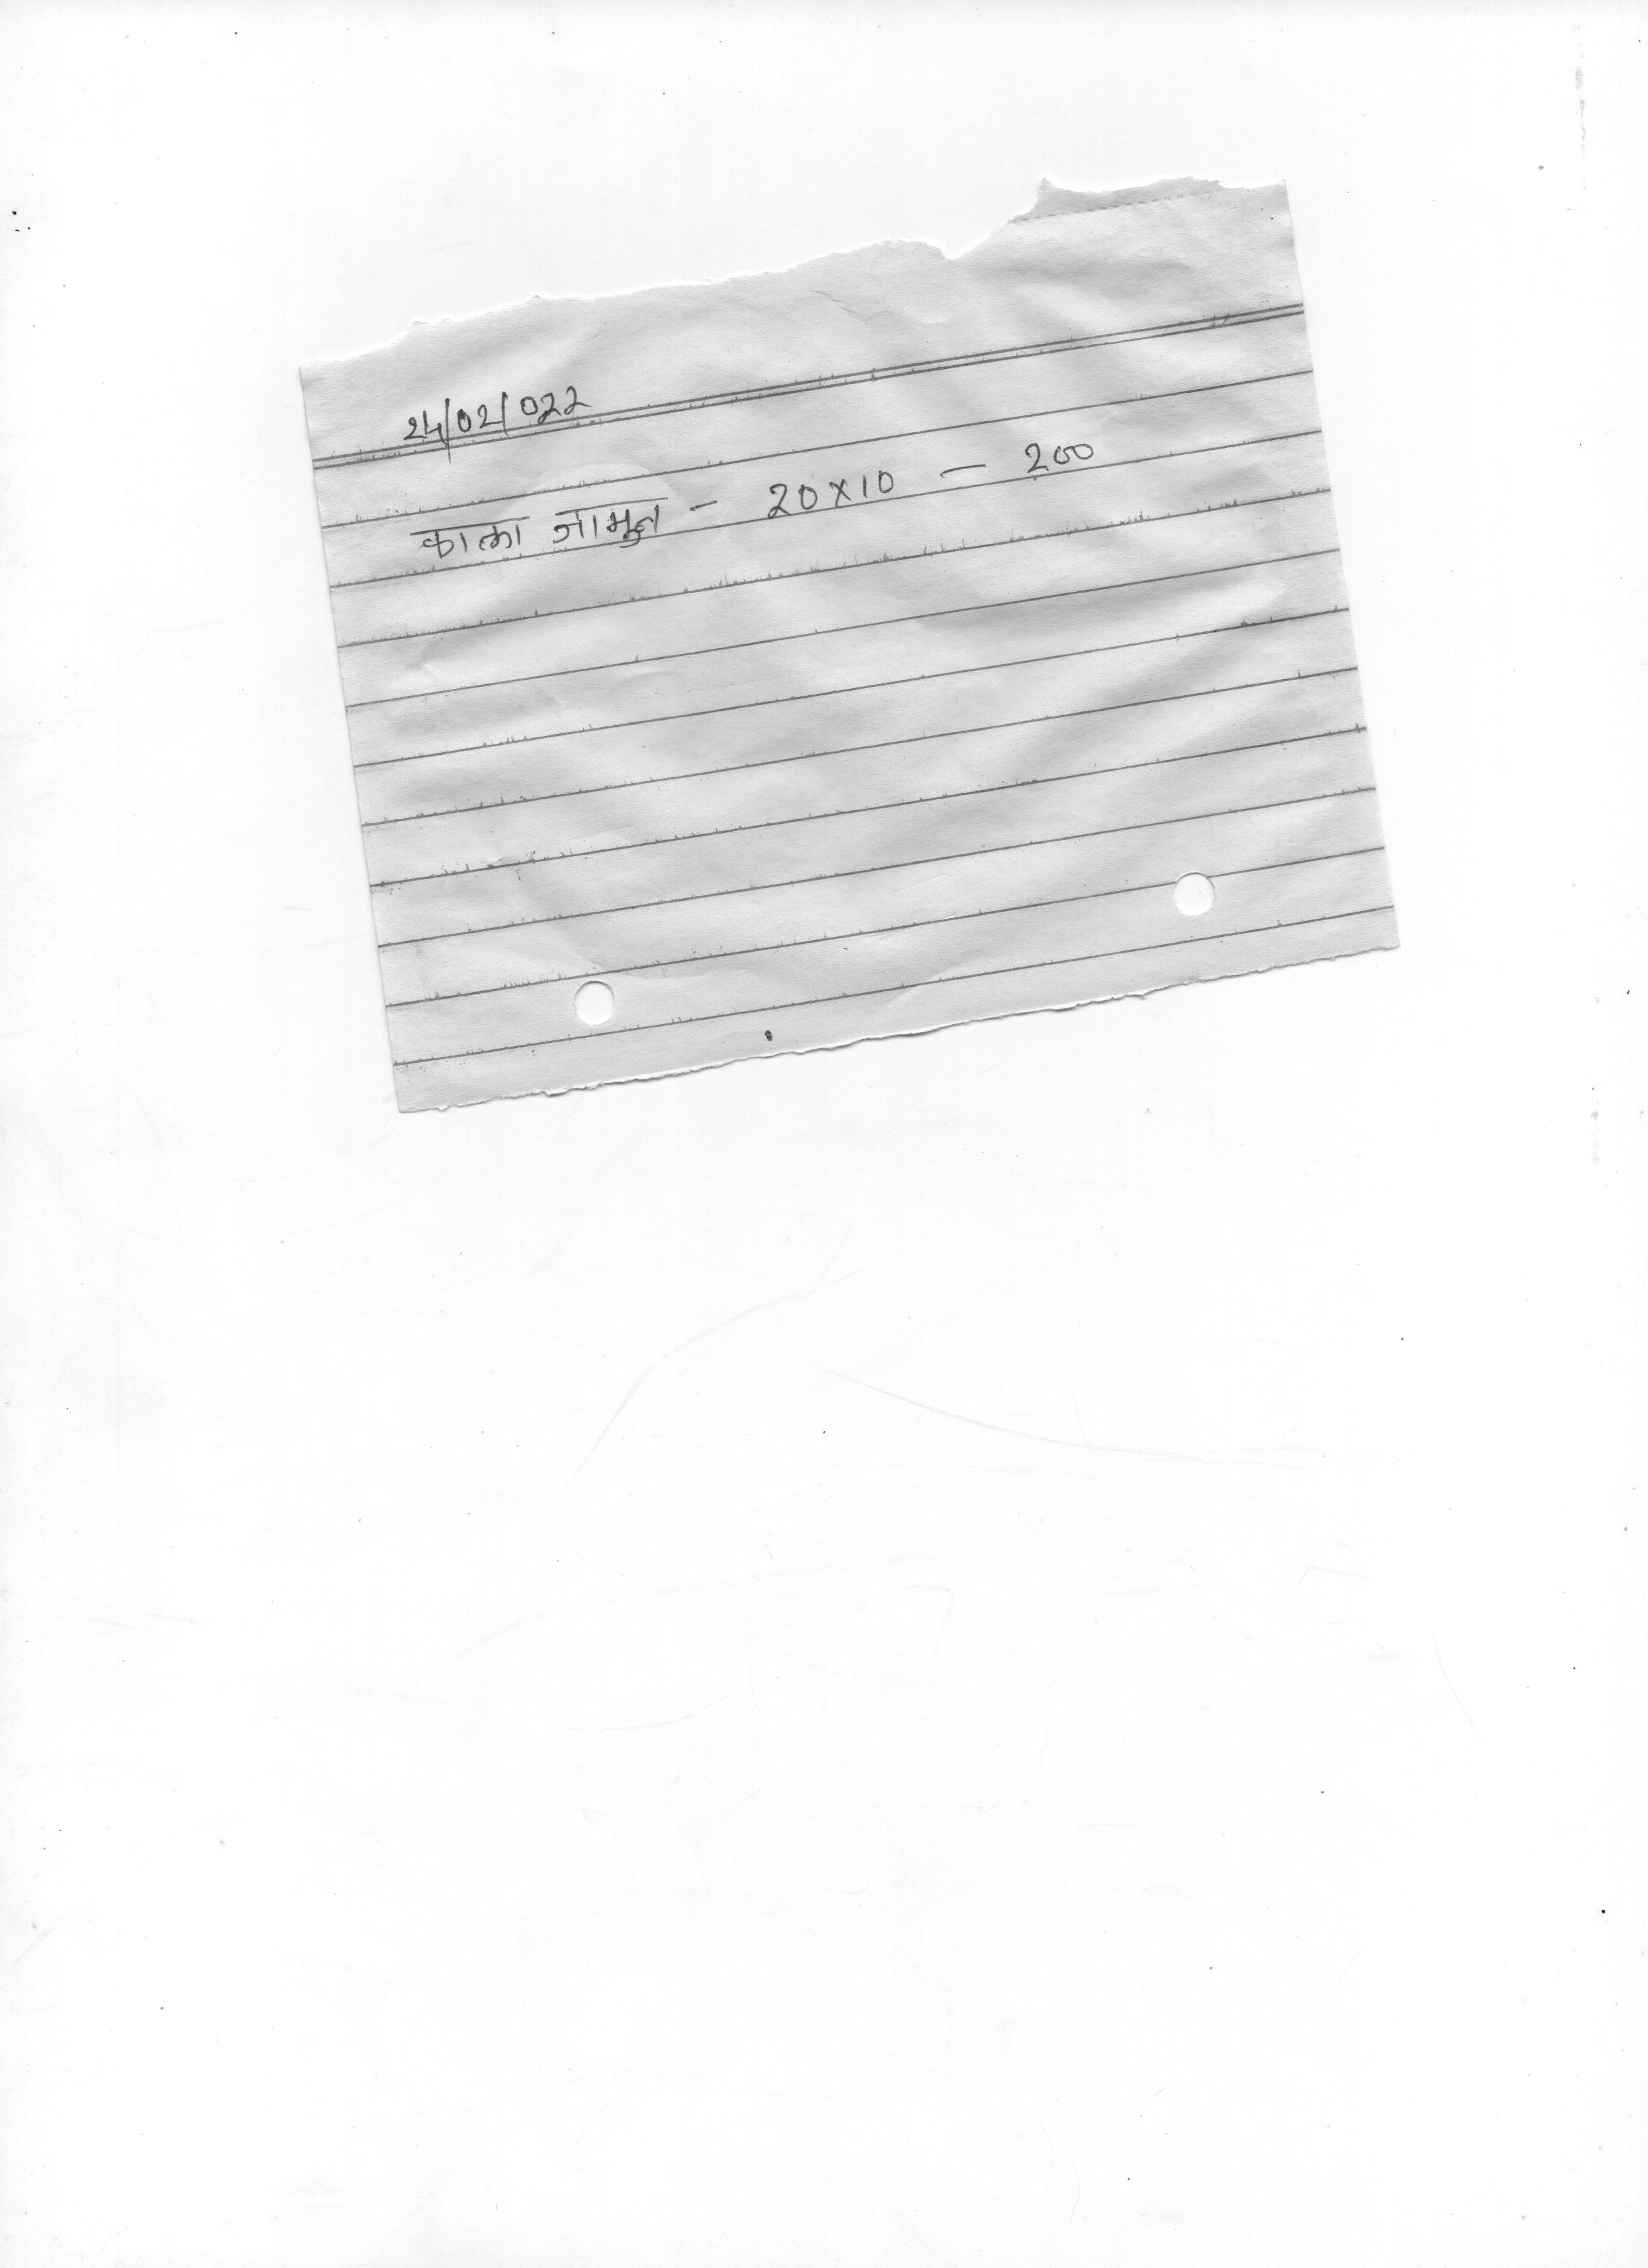 24/02/022
काला जामुन - 20x10 — 200